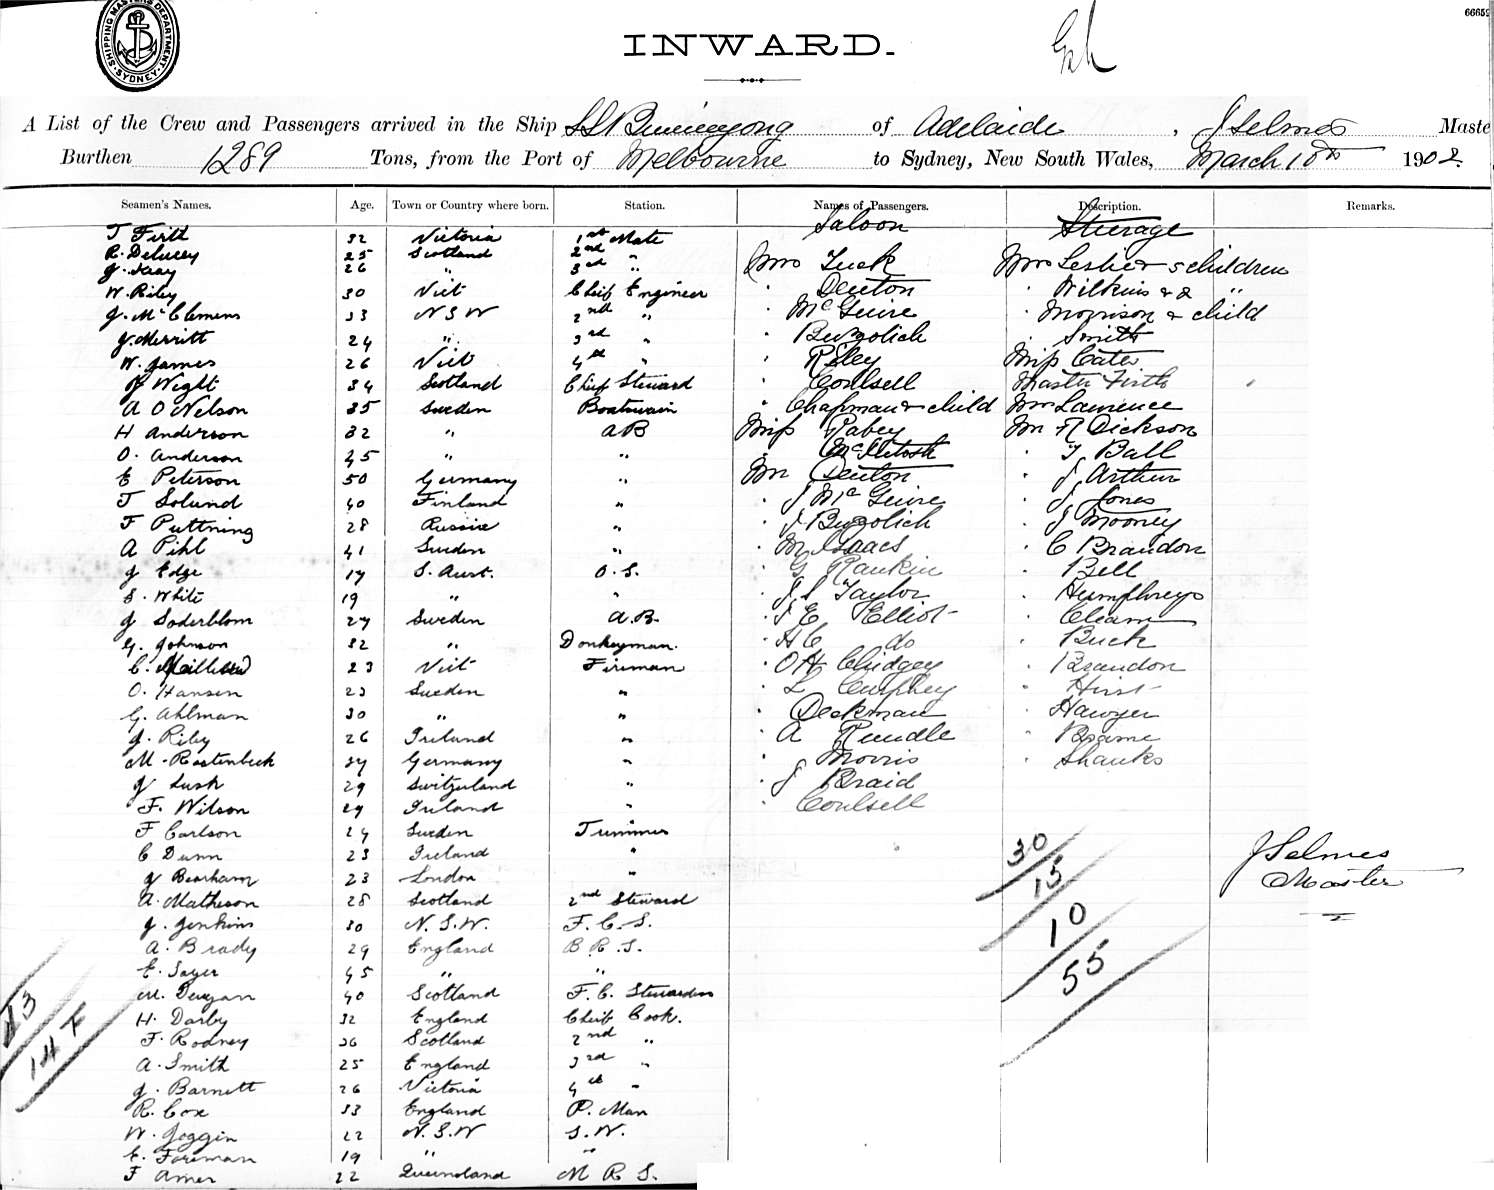 SHIPPING MASTERS DEPARTMENT · SYDNEY ·
INWARD.
A List of the Crew and Passengers arrived in the Ship SS Buninyong of Adelaide, J Selmes Maste
Burthen 1289 Tons, from the Port of Melbourne to Sydney, New South Wales, March 10th 1902.
Seamen's Names. Age. Town or Country where born. Station. Names of Passengers. Description. Remarks.
Saloon Steerage
T Firth 32 Victoria 1st Mate
R. Delucey 25 Scotland 2nd " Mrs Tuck Mrs Leslie & 5 children
J. 26 " 3rd "
W. Riley 30 Vict Chief Engineer " Denton " Wilkins & 2 "
J. McClemens 33 N S W 2nd " " McGuire " Morrison & child
J. Merritt 24 " 3rd " " Buzolich " Smith
W. James 26 Vict 4th " " Riley Miss Cater
J Wight 34 Scotland Chief Steward " Coulsell Master Firth
A O Nelson 35 Sweden Boatswain " Chapman & child Mrs Lawrence
H Anderson 32 " A B Miss Rabey Mr R Dickson
O. Anderson 45 " " " McIntosh " T Ball
E Peterson 50 Germany " Mr Denton " J Arthur
T Solund 40 Finland " " J McGuire " J Jones
F Puttning 28 Russia " " J Buzolich " J Mooney
A Pihl 41 Sweden " " M Isaacs " C Brandon
J Edge 17 S. Aust. O. S. " G Rankin " Bell
S. White 19 " " " J S Taylor " Humphreys
J Soderblom 27 Sweden A. B. " J E Elliot
G. Johnson 32 " Donkeyman. " H C do " Buck
C. 23 Vict Fireman " O H Chidgey " Brandon
O. Hansen 23 Sweden " " L Cumphey " Hirst
G. Ahlman 30 " " " Deekman " Hawyer
J. Riley 26 Ireland " " A Rundle " Brame
M. Rostenbeck 34 Germany " " Morris " Shanks
J Lusk 29 Switzerland " " J Braid
F. Wilson 29 Ireland " " Coulsell
F Carlson 24 Sweden Trimmer
C Dunn 23 Ireland " 30 J Selmes
J Bearham 23 London " 15 Master
A. Matheson 28 Scotland 2nd Steward
J. Jenkins 30 N. S. W. F. C. S. 10
A. Brady 29 England B R. S.
E. Sayer 45 " " 55
M. Deugan 40 Scotland F. C. Stewardess
43
H. Darby 32 England Chief Cook.
F. Rodney 36 Scotland 2nd "
14 F
A. Smith 25 England 3rd "
J. Barnett 26 Victoria 4th "
R. Cox 33 England P. Man
W. Goggin 22 N. S. W S. W.
E. Foreman 19 " "
F Amer 22 Queensland M R S.